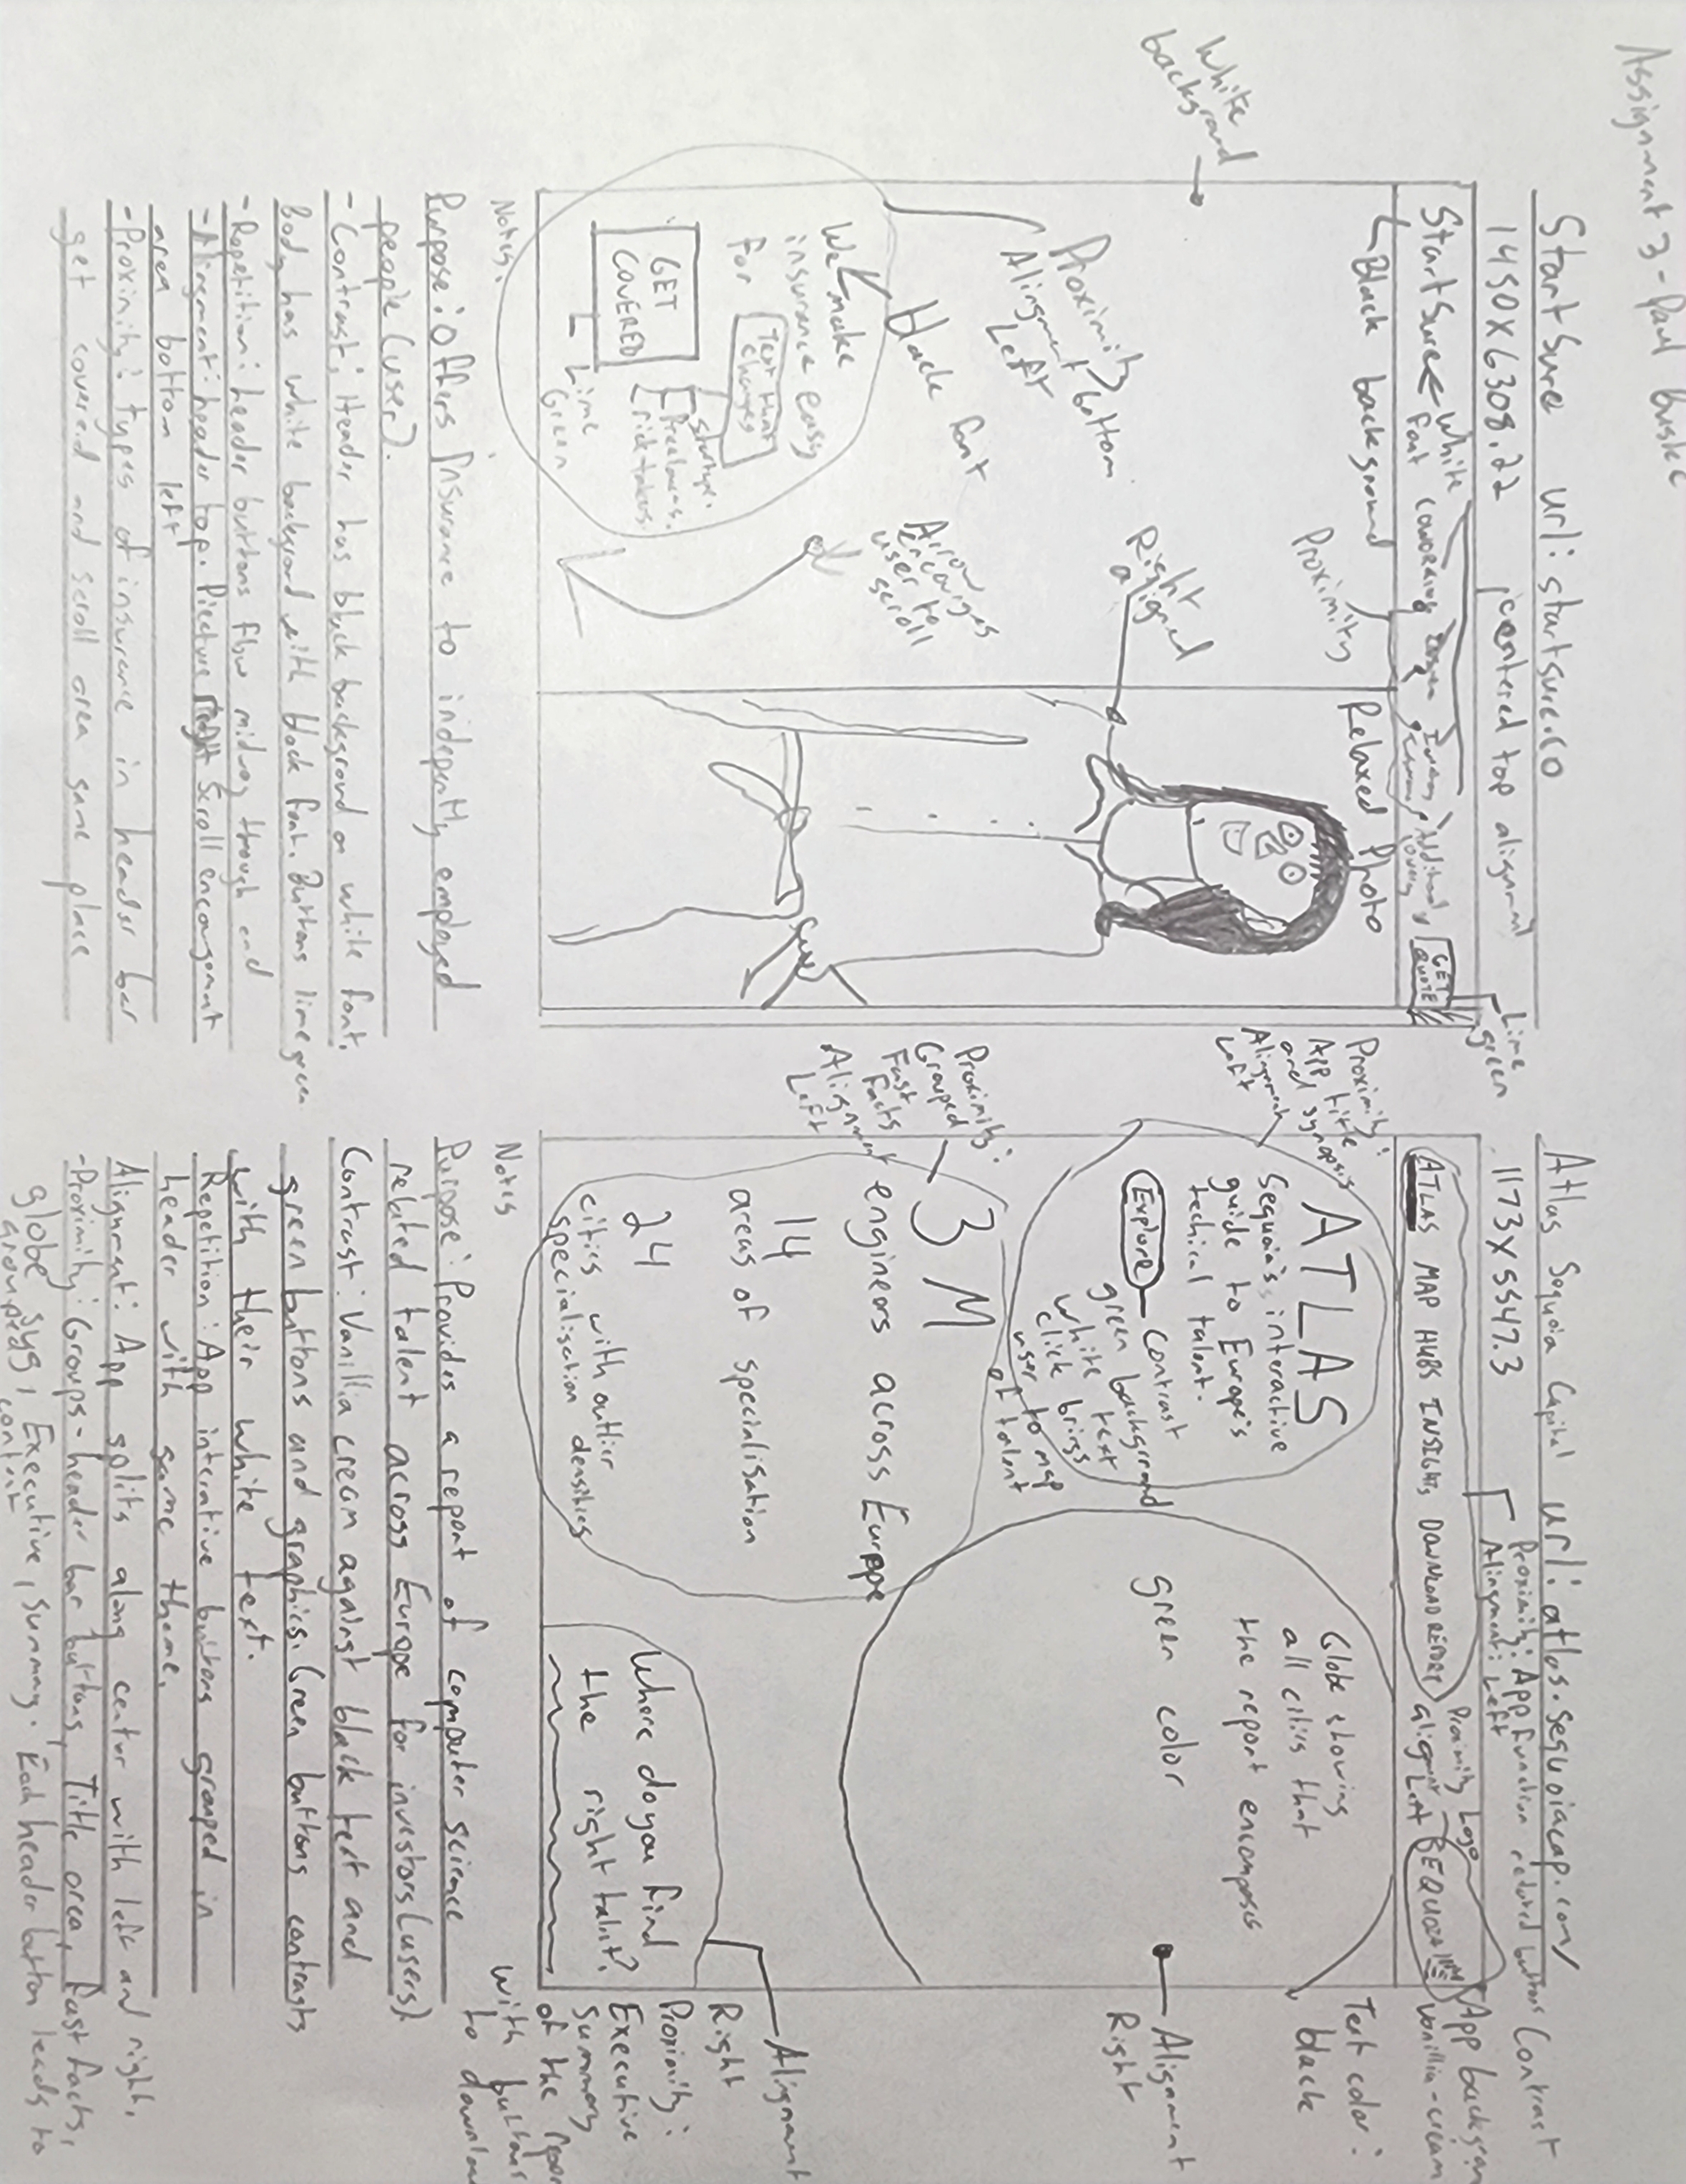 Assignment 3 - Paul
StartSure url: startsure.co
1450 X 6308.22 centered top alignment
Lime
green
StartSure
White
font
Coworking
Additional
GET
QUOTE
Black background
Proximity
Relaxed Photo
White
background
Right
aligned
Proximity
Alingment bottom
Left
black font
Arrow
encourges
user to
scroll
We make
insurance easy
for
Text that
changes
Freelancers.
risk-takers
GET
COVERED
Lime
Green
Notes.
Purpose: Offers Insurance to indepently employed
people (user).
- Contrast: Header has black background on white font.
Body has white background with black font. Buttons lime green
- Repetition: header buttons flow midway through end
- Alingment: header top. Piecture right Scroll encouragement
area bottom left
- Proximity: types of insurance in header bar
get covered and scroll area same place
Atlas Sequoia Capital url: atlas.sequoiacap.com/
1173 X 5547.3
Proximity: App function related buttons
Alingment: Left
Contrast
App background
vanillia-cream
Text color:
black
ATLAS MAP HUBS INSIGHTS DOWNLOAD REPORT
Proximity Logo
alignment
Left
SEQUOIA
Proximity:
App title
and synopsis
Alingment
Left
ATLAS
Sequoia's interactive
guide to Europe's
techical talent.
Explore
Contrast
green background
white text
click brings
user to map
of talent
Globe showing
all cities that
the report encompases
green color
Alignment
Right
Proximity:
Grouped
Fast
Facts
Alignment
Left
3 M
engineers across Europe
14
areas of specialisation
24
cities with outlier
specialisation densities
Where do you find
the right talent?
Alignment
Right
Proximity:
Executive
Summary
of the repor
with buttons
to downloa
Notes
Purpose: Provides a report of computer science
related talent across Europe for investors (users).
Contrast: Vanillia cream against black text and
green buttons and graphics. Green buttons contrasts
with their white text.
Repetition: App interative buttons grouped in
header with same theme.
Alignment: App splits along center with left and right.
- Proximity: Groups - header bar buttons, Title area, Fast facts,
globe svg, Executive, summary. Each header button leads to
grouped content